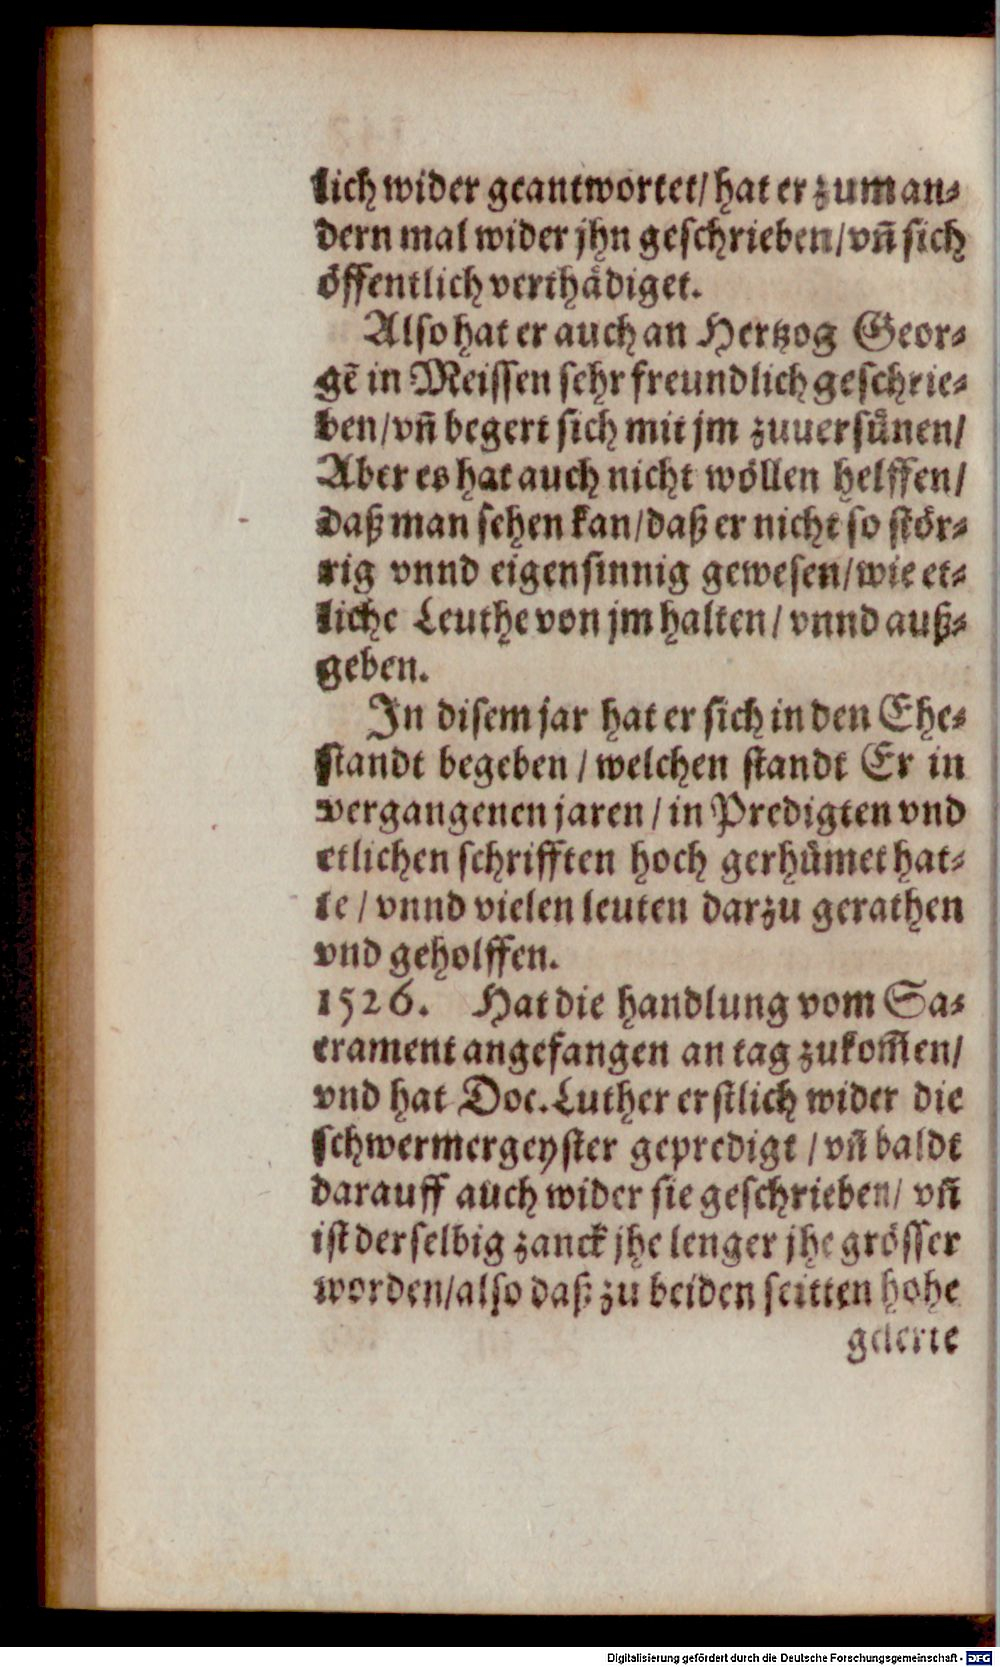 lich wider geantwortet/ hat er zum an⸗
dern mal wider jhn geschrieben/ vñ sich
öffentlich verthädiget.
Also hat er auch an Hertzog Geor⸗
gē in Meissen sehr freundlich geschrie⸗
ben/ vñ begert sich mit jm zuuersünen/
Aber es hat auch nicht wöllen helffen/
daß man sehen kan/ daß er nicht so stör⸗
rig vnnd eigensinnig gewesen/ wie et⸗
liche Leuthe von jm halten/ vnnd auß⸗
geben.
In disem jar hat er sich in den Ehe⸗
standt begeben / welchen standt Er in
vergangenen jaren / in Predigten vnd
etlichen schrifften hoch gerhümet hat⸗
te / vnnd vielen leuten darzu gerathen
vnd geholffen.
1526. Hat die handlung vom Sa⸗
crament angefangen an tag zukom̃en/
vnd hat Doc. Luther erstlich wider die
schwermergeyster gepredigt / vñ baldt
darauff auch wider sie geschrieben/ vñ
ist derselbig zanck jhe lenger jhe grösser
worden/ also daß zu beiden seitten hohe
gelerte
Digitalisierung gefördert durch die Deutsche Forschungsgemeinschaft - DFG